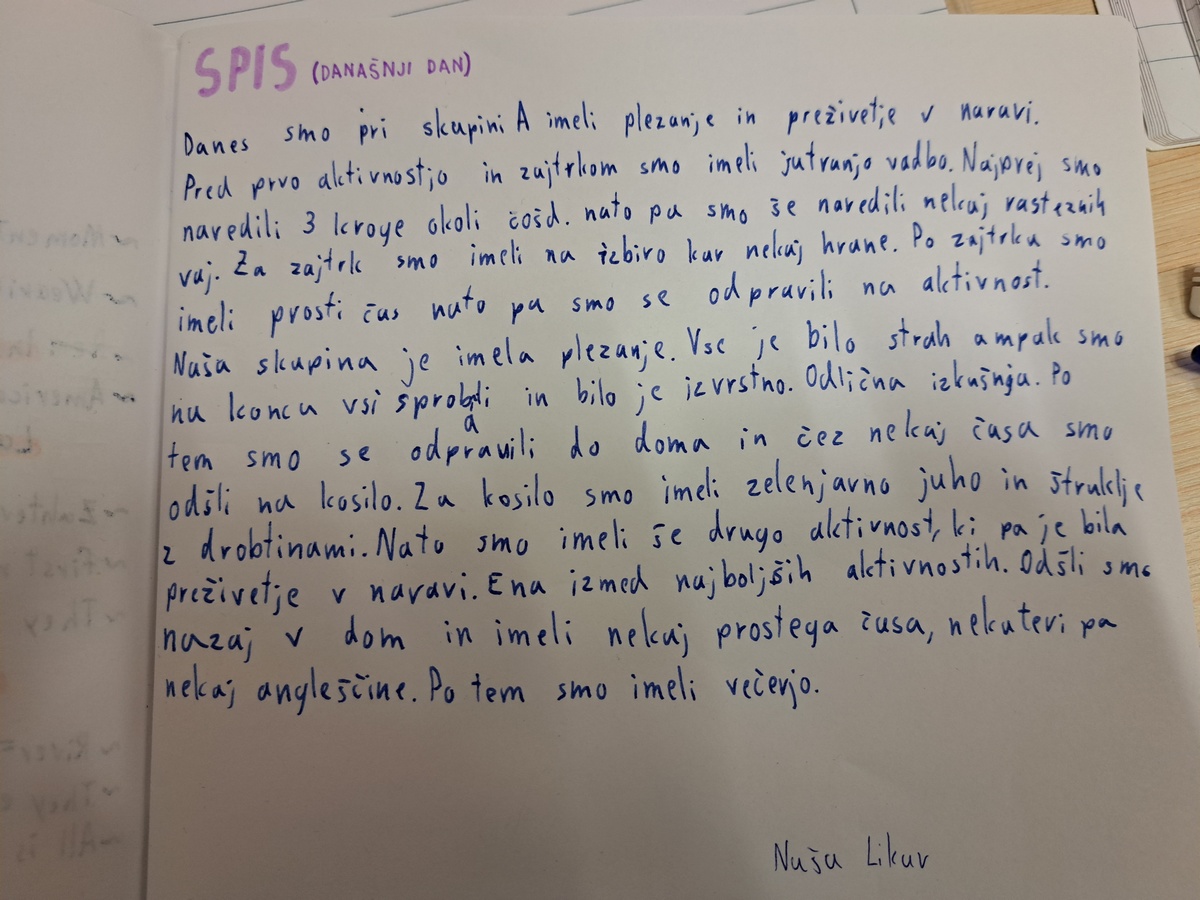 SPIS (DANAŠNJI DAN)
Danes smo pri skupini A imeli plezanje in preživetje v naravi.
Pred prvo aktivnostjo in zajtrkom smo imeli jutranjo vadbo. Najprej smo
naredili 3 kroge okoli čošd. nato pa smo še naredili nekaj razteznih
vaj. Za zajtrk smo imeli na izbiro kar nekaj hrane. Po zajtrku smo
imeli prosti čas nato pa smo se odpravili na aktivnost.
Naša skupina je imela plezanje. Vse je bilo strah ampak smo
na koncu vsi sprobali in bilo je izvrstno. Odlična izkušnja. Po
tem smo se odpravili do doma in čez nekaj časa smo
odšli na kosilo. Za kosilo smo imeli zelenjavno juho in štruklje
z drobtinami. Nato smo imeli še drugo aktivnost, ki pa je bila
preživetje v naravi. Ena izmed najboljših aktivnostih. Odšli smo
nazaj v dom in imeli nekaj prostega časa, nekateri pa
nekaj angleščine. Po tem smo imeli večerjo.
Nuša Likar
~ Moment
~ America
~ first
~ They
~ River
~ They
~ All is